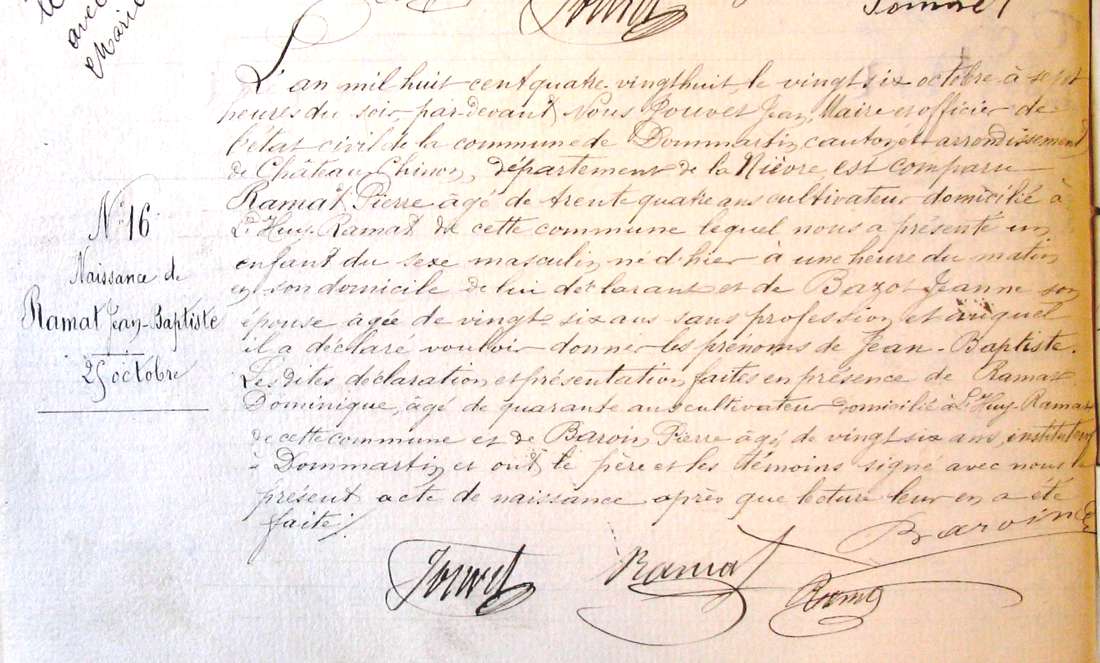 avec
Mari
N° 16
Naissance de
Ramat Jean-Baptiste
25 octobre
L'an mil huit cent quatre vingt huit, le vingt six octobre à sept
heures du soir, par devant Nous Jouvet Jean, Maire et officier de
l'état civil de la commune de Dommartin, canton et arrondissement
de Château-Chinon, département de la Nièvre, est comparu
Ramat Pierre âgé de trente quatre ans cultivateur domicilié à
L'Huy-Ramat de cette commune lequel nous a présenté un
enfant du sexe masculin, né d'hier à une heure du matin
en son domicile de lui déclarant et de Bazot Jeanne son
épouse âgée de vingt-six ans sans profession, et auquel
il a déclaré vouloir donner les prénoms de Jean-Baptiste.
Les dites déclaration et présentation, faites en présence de Ramat
Dominique, âgé de quarante ans cultivateur domicilié à L'Huy-Ramat
de cette commune et de Baroin Pierre âgé de vingt six ans, instituteur
à Dommartin, et ont le père et les témoins signé avec nous le
présent acte de naissance après que lecture leur en a été
faite ./.
Baroin
Jouvet Ramat